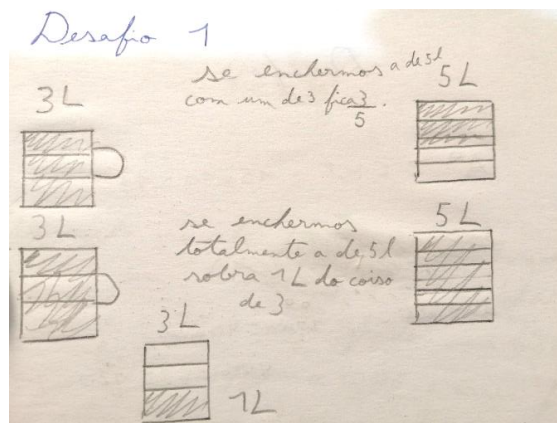 Desafio 1
se enchermos a de 5l
com um de 3 fica 3/5.
3L
5L
3L
se enchermos
totalmente a de 5l
sobra 1L do coiso
de 3
5L
3L
1L